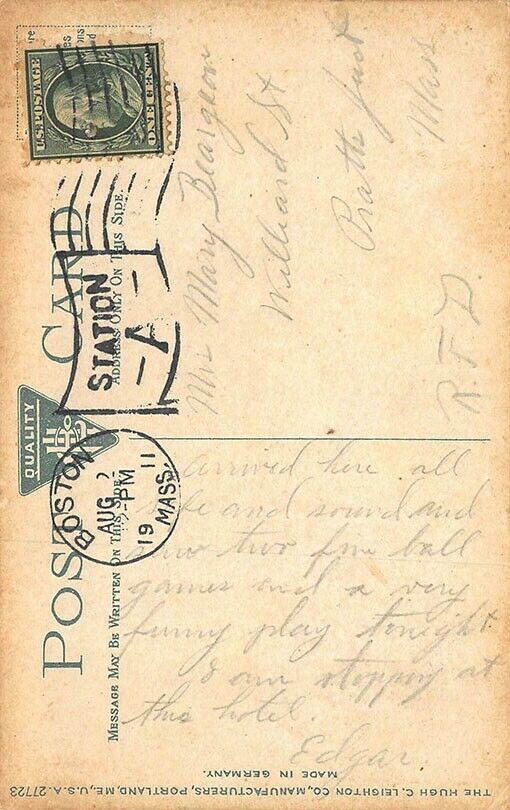 POST CARD
QUALITY
MESSAGE MAY BE WRITTEN ON THIS SIDE.
ADDRESS ONLY ON THIS SIDE.
U.S. POSTAGE
ONE CENT
BOSTON
AUG 2
PM
19 11
MASS.
STATION
A
Mrs Mary
Williard St
Pratt Junct
Mass
R. F. D.
arrived here all
safe and sound and
saw two fine ball
games and a very
funny play tonight
I am stopping at
this hotel.
Edgar.
MADE IN GERMANY.
THE HUGH C. LEIGHTON CO., MANUFACTURERS, PORTLAND, ME., U.S.A. 27723